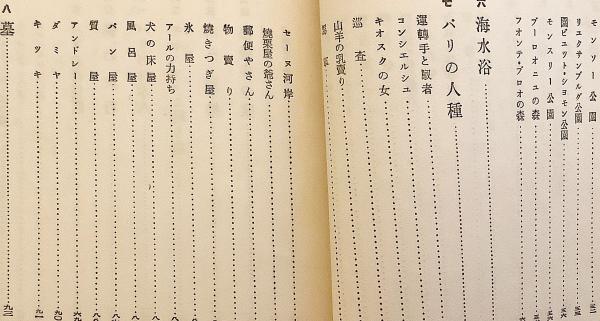 モンソー公園
リュクサンブルグ公園
園ビュット・ショモン公園
モンスリー公園
ブーロオニュの森
フオンテ・ブロオの森
六 海水浴
七 パリの人種
運轉手と馭者
コンシエルシュ
キオスクの女
巡査
山羊の乳賣り
セーヌ河岸
燒栗屋の爺さん
郵便やさん
物賣り
燒きつぎ屋
氷屋
アールの力持ち
犬の床屋
風呂屋
パン屋
質屋
アンドレー
ダミヤ 九〇
キッキ 九一
八 墓 九三